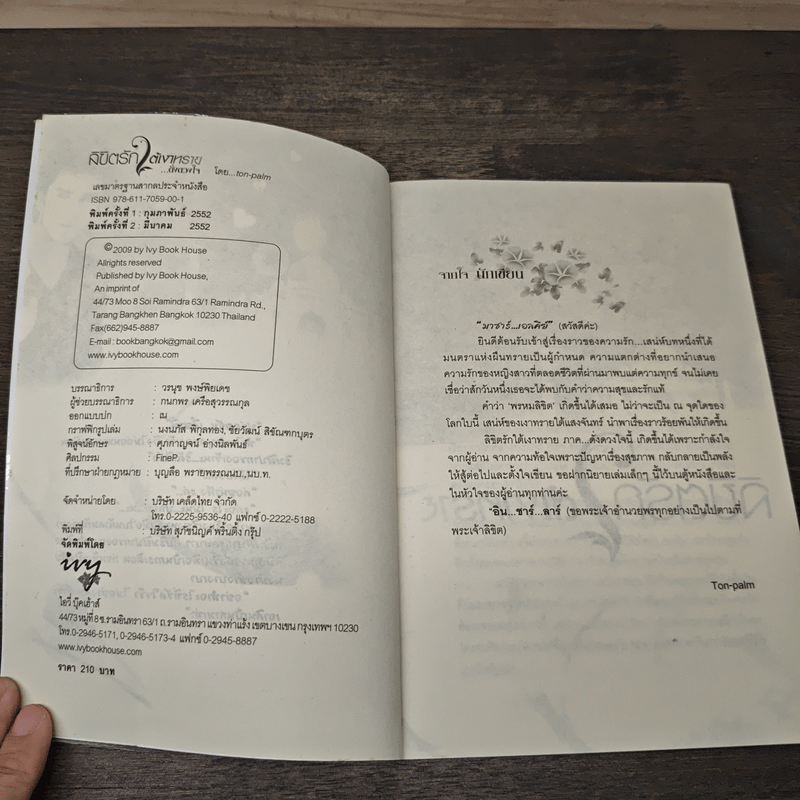 ลิขิตรักใต้เงาทราย
...ดังดวงใจ
โดย...ton-palm
เลขมาตรฐานสากลประจำหนังสือ
ISBN 978-611-7059-00-1
พิมพ์ครั้งที่ 1 : กุมภาพันธ์ 2552
พิมพ์ครั้งที่ 2 : มีนาคม 2552
©2009 by Ivy Book House
Allrights reserved
Published by Ivy Book House,
An imprint of
44/73 Moo 8 Soi Ramindra 63/1 Ramindra Rd.,
Tarang Bangkhen Bangkok 10230 Thailand
Fax(662)945-8887
E-mail : bookbangkok@gmail.com
www.ivybookhouse.com
บรรณาธิการ : วรนุช พงษ์พิยเดช
ผู้ช่วยบรรณาธิการ : กนกพร เครือสุวรรณกุล
ออกแบบปก : ณ
กราฟฟิกรูปเล่ม : นงนภัส พิกุลทอง, ชัยวัฒน์ สีขัณฑกบุตร
พิสูจน์อักษร : ศุภกาญจน์ อ่างนิลพันธ์
ศิลปกรรม : FineP.
ที่ปรึกษาฝ่ายกฎหมาย : บุญลือ พรายพรรณนบ.,นบ.ท.
จัดจำหน่ายโดย : บริษัท เคล็ดไทย จำกัด
โทร.0-2225-9536-40 แฟกซ์ 0-2222-5188
พิมพ์ที่ : บริษัท สุภัชนิญค์ พริ้นติ้ง กรุ๊ป
จัดพิมพ์โดย
ivy
ไอวี่ บุ๊คเฮ้าส์
44/73 หมู่ที่ 8 ซ.รามอินทรา 63/1 ถ.รามอินทรา แขวงท่าแร้ง เขตบางเขน กรุงเทพฯ 10230
โทร.0-2946-5171, 0-2946-5173-4 แฟกซ์ 0-2945-8887
www.ivybookhouse.com
ราคา 210 บาท
จากใจ นักเขียน
"มาซาร์...เอลคิซ์" (สวัสดีค่ะ)
ยินดีต้อนรับเข้าสู่เรื่องราวของความรัก...เสน่ห์บทหนึ่งที่ได้
มนตราแห่งผืนทรายเป็นผู้กำหนด ความแตกต่างที่อยากนำเสนอ
ความรักของหญิงสาวที่ตลอดชีวิตที่ผ่านมาพบแต่ความทุกข์ จนไม่เคย
เชื่อว่าสักวันหนึ่งเธอจะได้พบกับคำว่าความสุขและรักแท้
คำว่า 'พรหมลิขิต' เกิดขึ้นได้เสมอ ไม่ว่าจะเป็น ณ จุดใดของ
โลกใบนี้ เสน่ห์ของเงาทรายใต้แสงจันทร์ นำพาเรื่องราวร้อยพันให้เกิดขึ้น
ลิขิตรักใต้เงาทราย ภาค...ดังดวงใจนี้ เกิดขึ้นได้เพราะกำลังใจ
จากผู้อ่าน จากความท้อใจเพราะปัญหาเรื่องสุขภาพ กลับกลายเป็นพลัง
ให้สู้ต่อไปและตั้งใจเขียน ขอฝากนิยายเล่มเล็กๆ นี้ไว้บนตู้หนังสือและ
ในหัวใจของผู้อ่านทุกท่านค่ะ
"อิน...ชาร์...ลาร์ (ขอพระเจ้าอำนวยพรทุกอย่างเป็นไปตามที่
พระเจ้าลิขิต)
Ton-palm